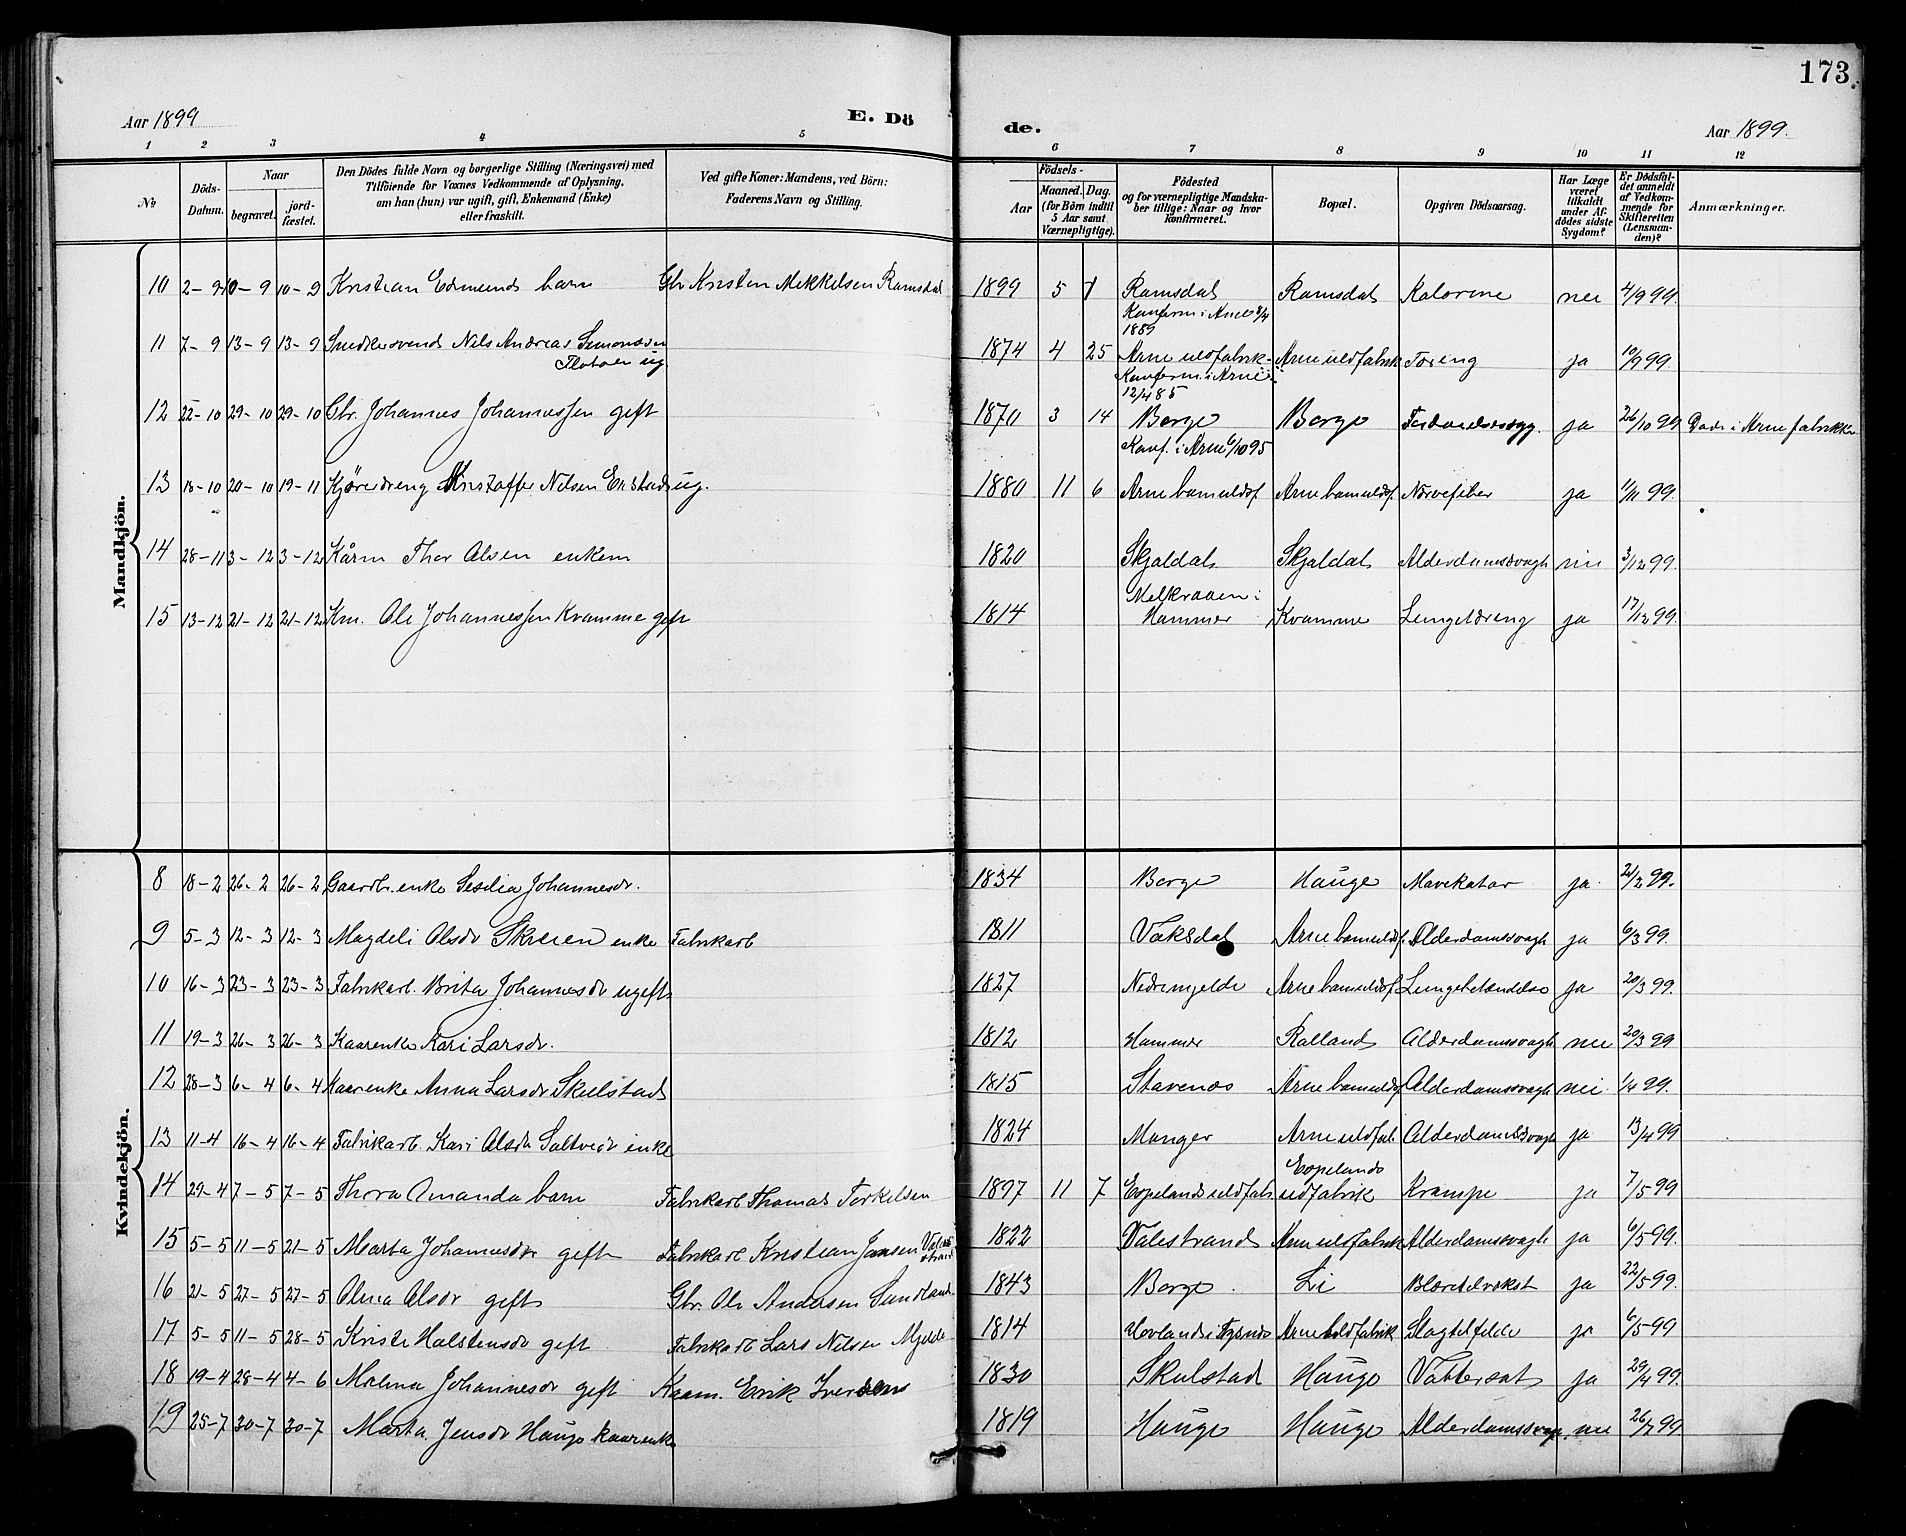 173.
Aar 1899
E. Dö
de.
Aar 1899.
1 2 3 4 5 6 7 8 9 10 11 12
No
Döds-Datum.
Naar
begravet.
jord-fæstet.
Den Dödes fulde Navn og borgerlige Stilling (Næringsvei) med
Tilföiende for Voxnes Vedkommende af Oplysning,
om han (hun) var ugift, gift, Enkemand (Enke)
eller fraskilt.
Ved gifte Koner: Mandens, ved Börn:
Faderens Navn og Stilling.
Födsels-
Aar
Maaned. Dag.
(for Börn indtil
5 Aar samt
Værnepligtige).
Födested
og for værnepligtige Mandska-
ber tillige: Naar og hvor
konfirmeret.
Bopæl.
Opgiven Dödsaarsag.
Har Læge
været
tilkaldt
under Af-
dödes sidste
Sygdom?
Er Dödsfal-
det anmeldt
af Vedkom-
mende for
Skifteretten
(Lensman-
den)?
Anmærkninger.
Mandkjön.
10 2-9 10-9 10-9 Kristian Edmund barn Gbr Kristen Mikkelsen Ramsdal 1899 5 Ramsdal Ramsdal Kolorine nei 4/9 99.
Konferm i Arne 8/4
1889
11 7-9 13-9 13-9 Snedkersvend Nils Andreas Simonsen
ug 1874 4 25 Arne uldfabrik Arne uldfabrik Tæreng ja 10/9 99.
Konferm. i Arne
12/4 85
12 22-10 29-10 29-10 Gbr. Johannes Johannessen gift 1870 3 14 Borge Borge ja 26/10 99 Døde i Arne fabrikke
Konf. i Arne 6/10 95
13 18-10 20-10 19-11 Kjøredreng Kristoffer Nilsen ug. 1880 11 6 Arne bomuldsf. Arne bomuldsf. Nervefeber ja 11/11 99.
14 28-11 3-12 3-12 Kårm Thor Olsen enkem 1820 Skjoldal Skjoldal Alderdomssvagh nei 3/12 99.
15 13-12 21-12 21-12 Km. Ole Johannessen Kvamme gift 1814 Melkraaen i
Hammer Kvamme Lungetæreng ja 17/12 99.
Kvindekjön.
8 18-2 26-2 26-2 Gaardb. enke Sesilia Johannesdr. 1834 Borge Hauge Mavekatar ja 21/2 99.
9 5-3 12-3 12-3 Magdeli Olsdr Skreien enke Fabrikarb 1811 Vaksdal Arne bomuldsf. Alderdomssvagh ja 6/3 99.
10 16-3 23-3 23-3 Fabrikarb. Brita Johannesdr ugift 1827 Nedremjelde Arne bomuldsf. Lungebetændelse ja 20/3 99.
11 19-3 26-3 26-3 Kaarenke Kari Larsdr. 1812 Hammer Rolland Alderdomssvagh nei 20/3 99
12 28-3 6-4 6-4 Kaarenke Anna Larsdr Skulstad 1815 Stavenes Arne bomuldsf Alderdomssvagh nei 1/4 99.
13 11-4 16-4 16-4 Fabrikarb. Kari Olsdr Saltveit enke 1824 Manger Arne uldfab. Alderdomssvagh ja 13/4 99
14 29-4 7-5 7-5 Thora Amanda barn Fabrikarb Thomas Torkelsen 1897 11 7 Espelands uldfab Espelands
uldfabrik Krampe ja 7/5 99
15 5-5 11-5 21-5 Marta Johannesdr gift Fabrikarb Kristian Jansen Vale-
strand 1822 Valestrand Arne uldfabrik Alderdomssvagh ja 6/5 99.
16 21-5 27-5 27-5 Olina Olsdr gift Gbr. Ole Andersen Sundland 1843 Borge Li ja 22/5 99.
17 5-5 11-5 28-5 Kristi Halstensdr gift Fabrikarb Lars Nilsen Mjelde 1814 Hovland i Arne uldfabrik Slagtilfelde ja 6/5 99
18 19-4 28-4 4-6 Malina Johannesdr gift Kaarm. Erik Iversen 1830 Skulstad Hauge Vattersot ja 29/4 99.
19 25-7 30-7 30-7 Marta Jensdr Hauge kaarenke 1819 Hauge Hauge Alderdomssvagh. nei 26/7 99